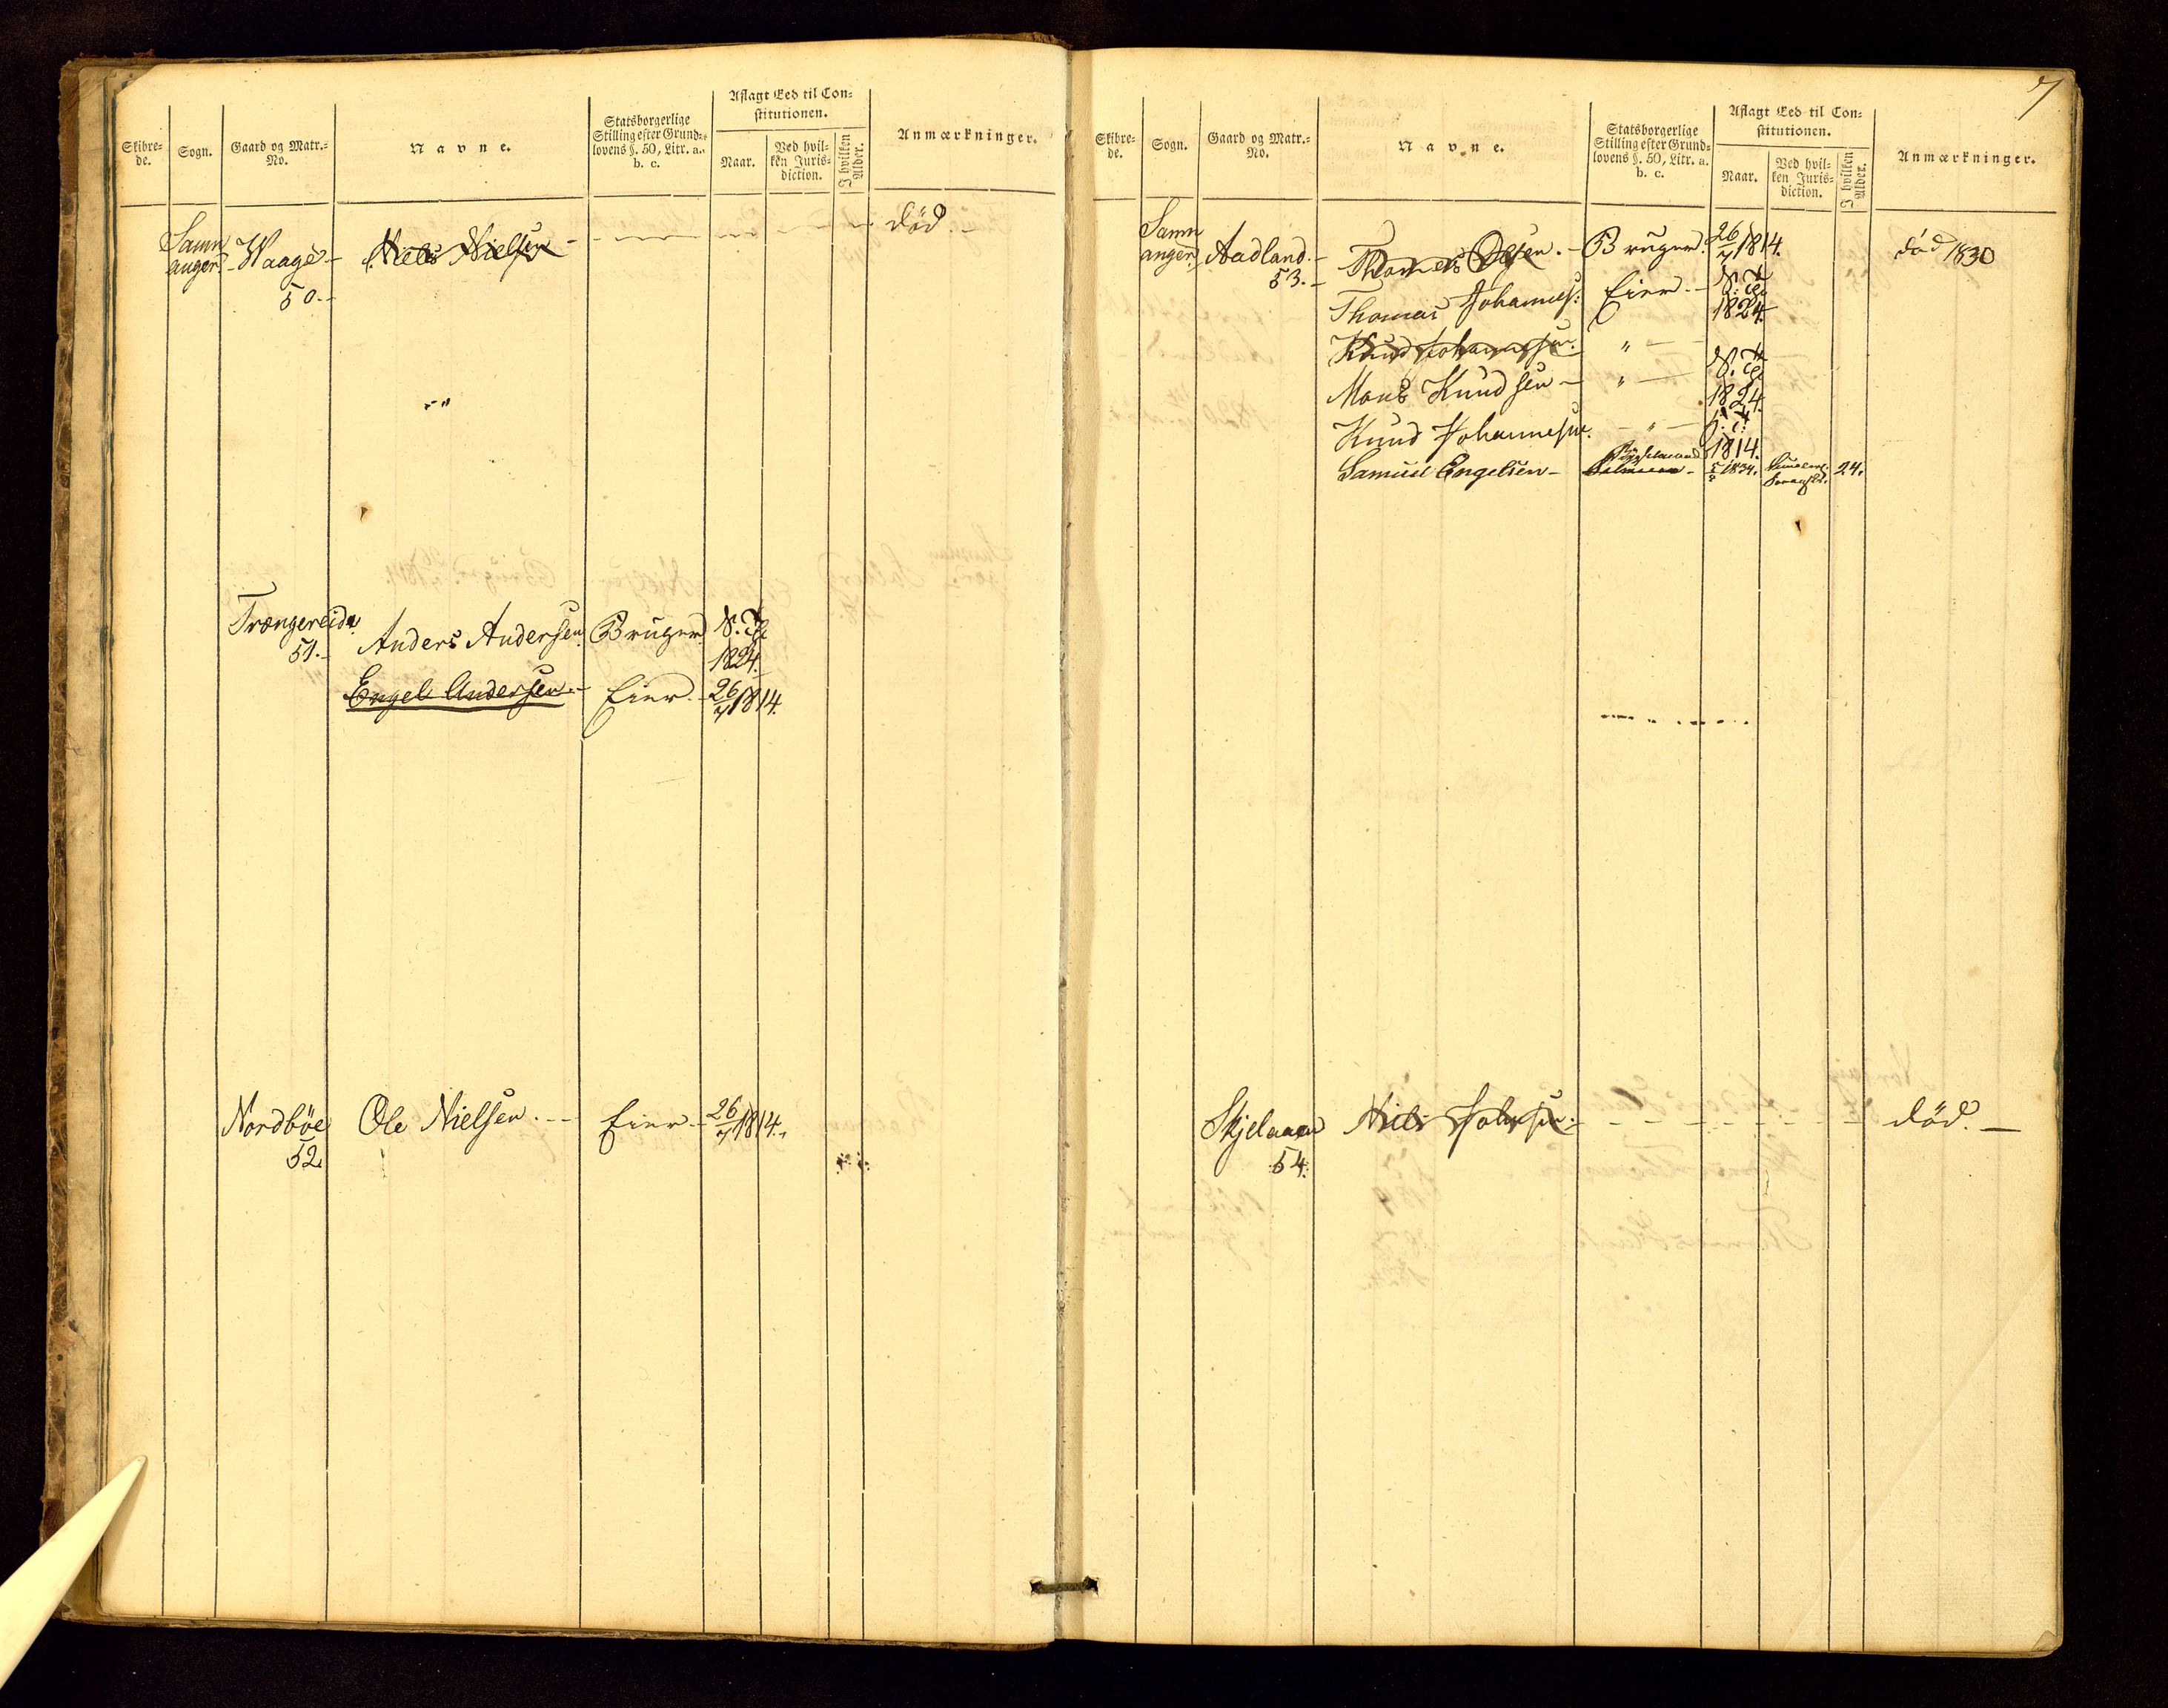 Skibre-
de.
Sogn.
Gaard og Matr.-
No.
Navne.
Statsborgerlige
Stilling efter Grund-
lovens §. 50, Litr. a.
b. c.
Aflagt Eed til Con-
stitutionen.
Naar.
Ved hvil-
ken Juris-
diction.
I hvilken
Alder.
Anmærkninger.
Samn
anger
Waage
50.
Niels Nielsen
død.
Trængereide
51.
Anders Andersen
Bruger
1824.
Engel Andersen.
Eier.
26/7 1814.
Nordböe
52.
Ole Nielsen.
Eier
26/7 1814.
7
Skibre-
de.
Sogn.
Gaard og Matr.-
No.
Navne.
Statsborgerlige
Stilling efter Grund-
lovens §. 50, Litr. a.
b. c.
Aflagt Eed til Con-
stitutionen.
Naar.
Ved hvil-
ken Juris-
diction.
I hvilken
Alder.
Anmærkninger.
Samn
anger
Aadland.
53.
Thomas Olsen.
Bruger.
26/7 1814.
død 1830
Thomas Johannes:
Eier.
1824.
Knud Johannessen.
"
Mons Knudsen
"
1824.
Knud Johannesen.
"
1814.
Samuel Engelsen
1834.
24.
Skjelaaen
54.
Niels Johnsen.
død.